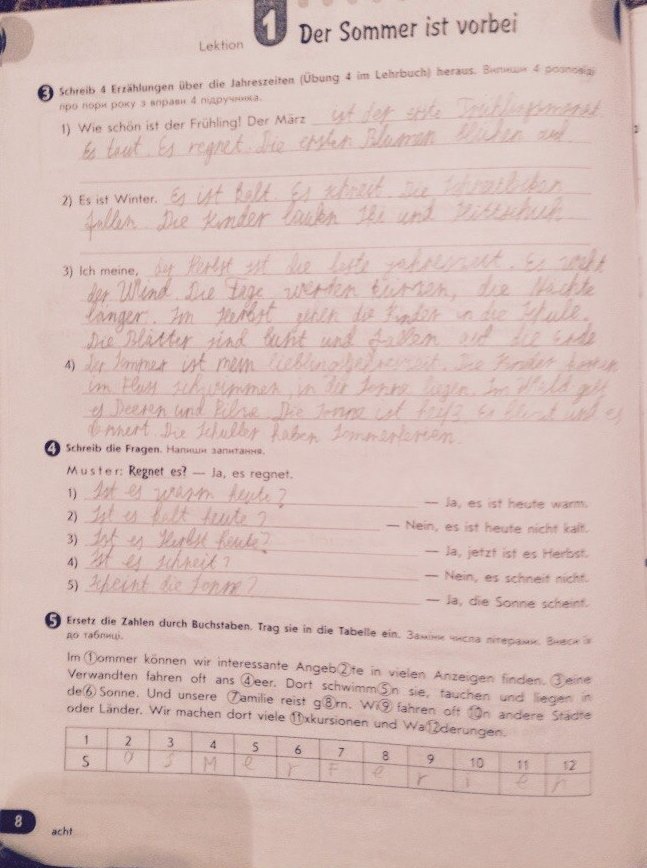 Lektion 1 Der Sommer ist vorbei
3 Schreib 4 Erzählungen über die Jahreszeiten (Übung 4 im Lehrbuch) heraus. Випиши 4 розповіді
про пори року з вправи 4 підручника.
1) Wie schön ist der Frühling! Der März ist der erste Frühlingsmonat
Es taut. Es regnet. Die ersten Blumen bluhen auf
2) Es ist Winter. Es ist kalt. Es schneit. Die Schneeflocken
fallen. Die Kinder laufen Ski und Schlittschuh
3) Ich meine, der Herbst ist die beste Jahreszeit. Es weht
der Wind. Die Tage werden kurzen, die Nächte
länger. Im Herbst gehen die Kinder in die Schule.
Die Blätter sind bunt und fallen auf die Erde
4) Der Sommer ist mein Lieblingsjahreszeit. Die Kinder
im Fluss schwimmen, in der Sonne liegen. Im Wald gibt
es Beeren und Pilze. Die Sonne ist heiß. Es blitzt und es
donnert. Die Schuller haben Sommerferien.
4 Schreib die Fragen. Напиши запитання.
Muster: Regnet es? — Ja, es regnet.
1) Ist es warm heute? — Ja, es ist heute warm.
2) Ist es kalt heute? — Nein, es ist heute nicht kalt.
3) Ist es Herbst heute? — Ja, jetzt ist es Herbst.
4) Ist es schneit? — Nein, es schneit nicht.
5) Scheint die Sonne? — Ja, die Sonne scheint.
5 Ersetz die Zahlen durch Buchstaben. Trag sie in die Tabelle ein. Заміни числа літерами. Внеси їх
до таблиці.
Im ①ommer können wir interessante Angeb②te in vielen Anzeigen finden. ③eine
Verwandten fahren oft ans ④eer. Dort schwimm⑤n sie, tauchen und liegen in
de⑥ Sonne. Und unsere ⑦amilie reist g⑧rn. Wi⑨ fahren oft ⑩n andere Städte
oder Länder. Wir machen dort viele ⑪xkursionen und Wa⑫derungen.
1 2 3 4 5 6 7 8 9 10 11 12
S o s M e r F e r i e n
8 acht